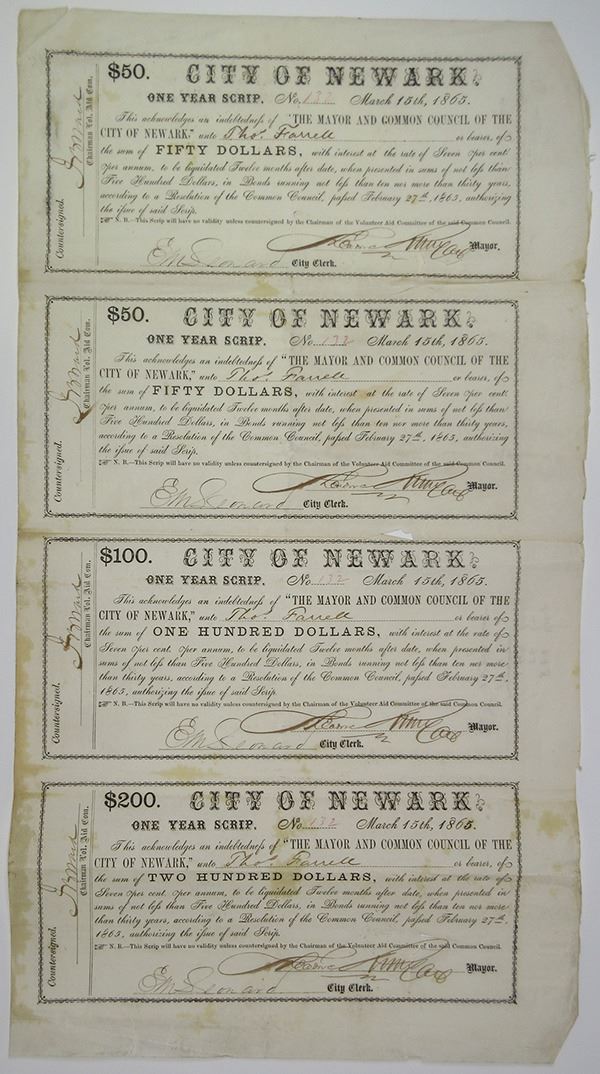 $50. CITY OF NEWARK.
ONE YEAR SCRIP. No. 132 March 15th, 1865.
This acknowledges an indebtedness of "THE MAYOR AND COMMON COUNCIL OF THE
CITY OF NEWARK," unto Thos. Farrell or bearer, of
the sum of FIFTY DOLLARS, with interest at the rate of Seven per cent
per annum, to be liquidated Twelve months after date, when presented in sums of not less than
Five Hundred Dollars, in Bonds running not less than ten nor more than thirty years,
according to a Resolution of the Common Council, passed February 27th, 1865, authorizing
the issue of said Scrip.
N. B.—This Scrip will have no validity unless countersigned by the Chairman of the Volunteer Aid Committee of the said Common Council.
Mayor.
City Clerk.
Countersigned.
Chairman Vol. Aid Com.
$50. CITY OF NEWARK.
ONE YEAR SCRIP. No. 132 March 15th, 1865.
This acknowledges an indebtedness of "THE MAYOR AND COMMON COUNCIL OF THE
CITY OF NEWARK," unto Thos. Farrell or bearer, of
the sum of FIFTY DOLLARS, with interest at the rate of Seven per cent
per annum, to be liquidated Twelve months after date, when presented in sums of not less than
Five Hundred Dollars, in Bonds running not less than ten nor more than thirty years,
according to a Resolution of the Common Council, passed February 27th, 1865, authorizing
the issue of said Scrip.
N. B.—This Scrip will have no validity unless countersigned by the Chairman of the Volunteer Aid Committee of the said Common Council.
Mayor.
City Clerk.
Countersigned.
Chairman Vol. Aid Com.
$100. CITY OF NEWARK.
ONE YEAR SCRIP. No. 132 March 15th, 1865.
This acknowledges an indebtedness of "THE MAYOR AND COMMON COUNCIL OF THE
CITY OF NEWARK," unto Thos. Farrell or bearer of
the sum of ONE HUNDRED DOLLARS, with interest at the rate of
Seven per cent. per annum, to be liquidated Twelve months after date, when presented in
sums of not less than Five Hundred Dollars, in Bonds running not less than ten nor more
than thirty years, according to a Resolution of the Common Council, passed February 27th,
1865, authorizing the issue of said Scrip.
N. B.—This Scrip will have no validity unless countersigned by the Chairman of the Volunteer Aid Committee of the said Common Council.
Mayor.
City Clerk.
Countersigned.
Chairman Vol. Aid Com.
$200. CITY OF NEWARK.
ONE YEAR SCRIP. No. 132 March 15th, 1865.
This acknowledges an indebtedness of "THE MAYOR AND COMMON COUNCIL OF THE
CITY OF NEWARK," unto Thos. Farrell or bearer, of
the sum of TWO HUNDRED DOLLARS, with interest at the rate of
Seven per cent. per annum, to be liquidated Twelve months after date, when presented in
sums of not less than Five Hundred Dollars, in Bonds running not less than ten nor more
than thirty years, according to a Resolution of the Common Council, passed February 27th,
1865, authorizing the issue of said Scrip.
N. B.—This Scrip will have no validity unless countersigned by the Chairman of the Volunteer Aid Committee of the said Common Council.
Mayor.
City Clerk.
Countersigned.
Chairman Vol. Aid Com.